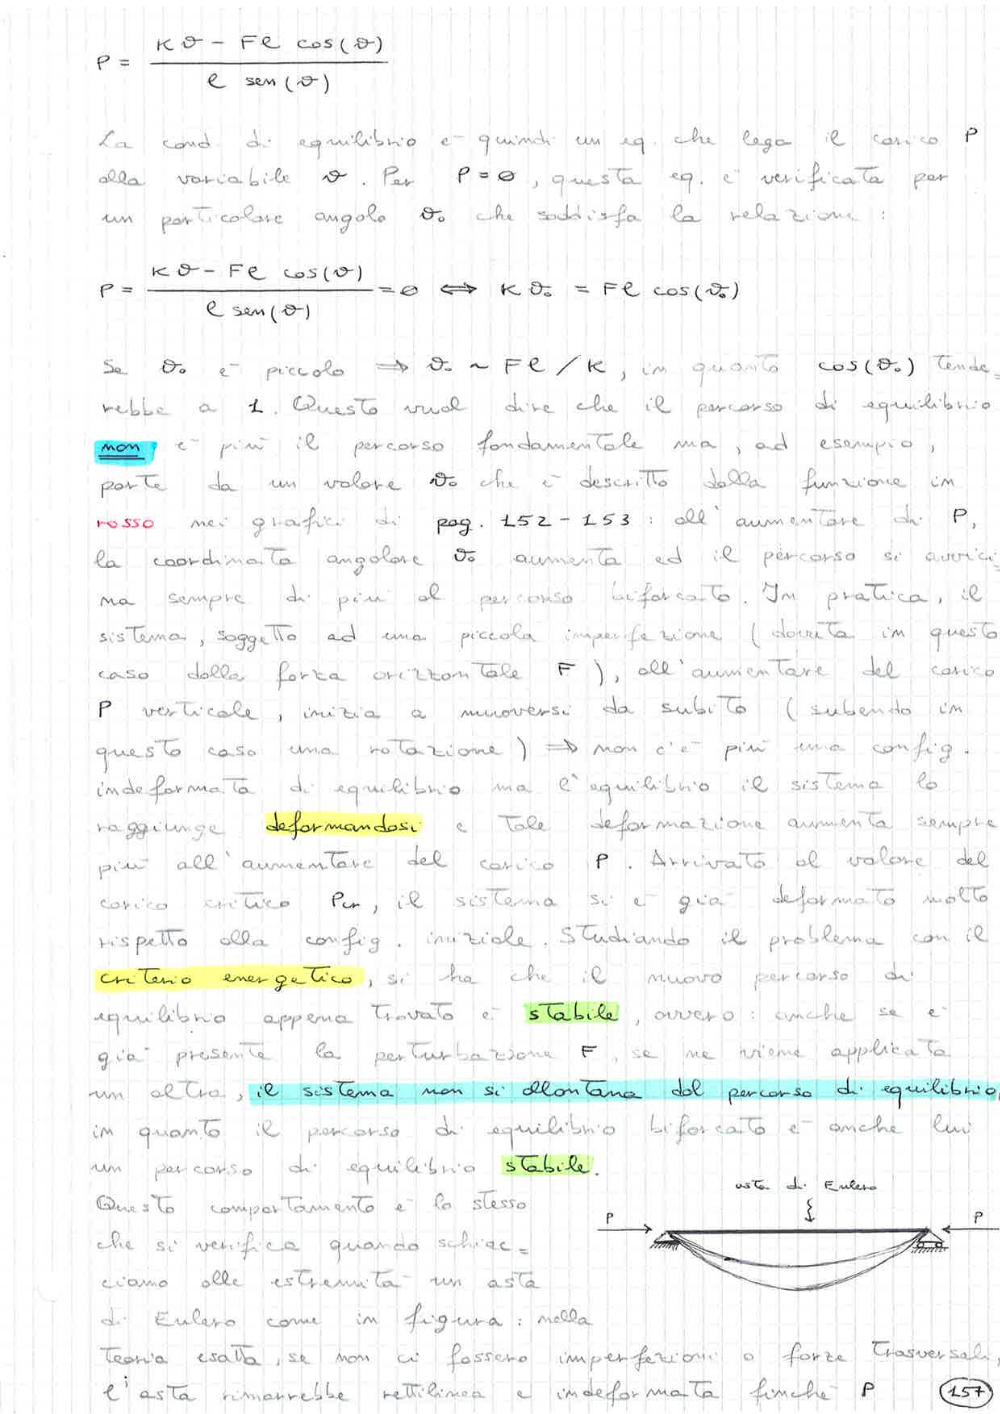 P = (Kϑ - Fl cos(ϑ)) / (l sen(ϑ))
La cond. di equilibrio è quindi un eq. che lega il carico P
alla variabile ϑ. Per P=0, questa eq. è verificata per
un particolare angolo ϑ₀ che soddisfa la relazione:
P = (Kϑ - Fl cos(ϑ)) / (l sen(ϑ)) = 0 ⟺ Kϑ₀ = Fl cos(ϑ₀)
Se ϑ₀ è piccolo ⇒ ϑ₀ ~ Fl/K, in quanto cos(ϑ₀) tende=
rebbe a 1. Questo vuol dire che il percorso di equilibrio
non è più il percorso fondamentale ma, ad esempio,
parte da un valore ϑ₀ che è descritto dalla funzione in
rosso nei grafici di pag. 152-153: all'aumentare di P,
la coordinata angolare ϑ₀ aumenta ed il percorso si avvici=
na sempre di più al percorso biforcato. In pratica, il
sistema, soggetto ad una piccola imperfezione (dovuta in questo
caso dalla forza orizzontale F), all'aumentare del carico
P verticale, inizia a muoversi da subito (subendo in
questo caso una rotazione) ⇒ non c'è più una config.
indeformata di equilibrio ma l'equilibrio il sistema lo
raggiunge deformandosi e tale deformazione aumenta sempre
più all'aumentare del carico P. Arrivato al valore del
carico critico Pcr, il sistema si è già deformato molto
rispetto alla config. iniziale. Studiando il problema con il
criterio energetico, si ha che il nuovo percorso di
equilibrio appena trovato è stabile, ovvero: anche se è
già presente la perturbazione F, se ne viene applicata
un altra, il sistema non si allontana dal percorso di equilibrio,
in quanto il percorso di equilibrio biforcato è anche lui
un percorso di equilibrio stabile.
asta di Eulero
P P
Questo comportamento è lo stesso
che si verifica quando schiac=
ciamo alle estremità un asta
di Eulero come in figura: nella
teoria esatta, se non ci fossero imperfezioni o forze trasversali,
l'asta rimarrebbe rettilinea e indeformata finché P
157